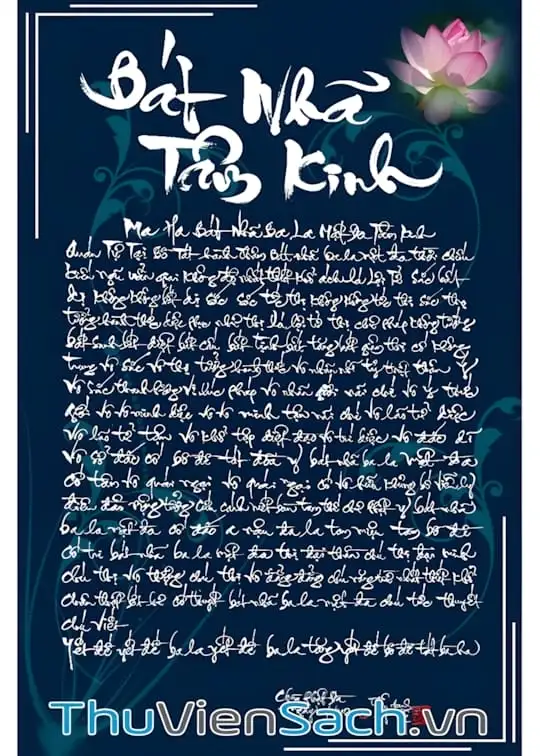 Bát Nhã
Tâm Kinh
Ma Ha Bát Nhã Ba La Mật Đa Tâm Kinh
Quán Tự Tại Bồ Tát hành thâm Bát nhã ba la mật đa thời chiếu
kiến ngũ uẩn giai không độ nhất thiết khổ ách Xá Lợi Tử Sắc bất
dị không không bất dị sắc sắc tức thị không không tức thị sắc thọ
tưởng hành thức diệc phục như thị Xá lợi tử thị chư pháp không tướng
bất sinh bất diệt bất cấu bất tịnh bất tăng bất giảm thị cố không
trung vô sắc vô thọ tưởng hành thức vô nhãn nhĩ tỷ thiệt thân ý
vô sắc thanh hương vị xúc pháp vô nhãn giới nãi chí vô ý thức
giới vô vô minh diệc vô vô minh tận nãi chí vô lão tử diệc
vô lão tử tận vô khổ tập diệt đạo vô trí diệc vô đắc dĩ
vô sở đắc cố bồ đề tát đỏa y bát nhã ba la mật đa
cố tâm vô quái ngại vô quái ngại cố vô hữu khủng bố viễn ly
điên đảo mộng tưởng cứu cánh niết bàn tam thế chư Phật y bát nhã
ba la mật đa cố đắc a nậu đa la tam miệu tam bồ đề
cố tri bát nhã ba la mật đa thị đại thần chú thị đại minh
chú thị vô thượng chú thị vô đẳng đẳng chú năng trừ nhất thiết khổ
chân thật bất hư cố thuyết bát nhã ba la mật đa chú tức thuyết
chú viết
Yết đế yết đế ba la yết đế ba la tăng yết đế bồ đề tát bà ha
ThuVienSach.vn